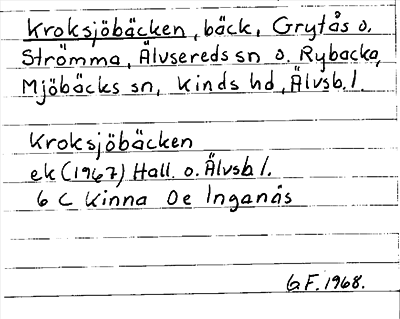 Kroksjöbäcken, bäck, Grytås o.
Strömma, Älvsereds sn o. Rybacka,
Mjöbäcks sn, Kinds hd, Älvsb. l.
Kroksjöbäcken
ek (1967) Hall. o. Älvsb l.
6 C Kinna 0e Inganäs
G.F. 1968.